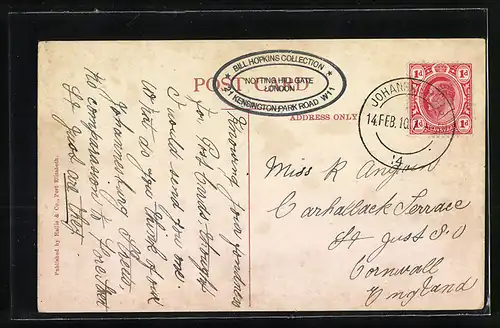 POST CARD
BILL HOPKINS COLLECTION
NOTTING HILL GATE
LONDON
21 KENSINGTON PARK ROAD W11
ADDRESS ONLY
JOHANN
14 FEB. 10
14
1d 1d
1d 1d
Knowing your fondness
for Post Cards thought
I would send you one.
What do you think of our
Johannesburg Street,
No comparasion to
St Just and that
Miss R
Carhallack Terrace
St Just S.O
Cornwall
England
Published by Hallis & Co., Port Elizabeth.